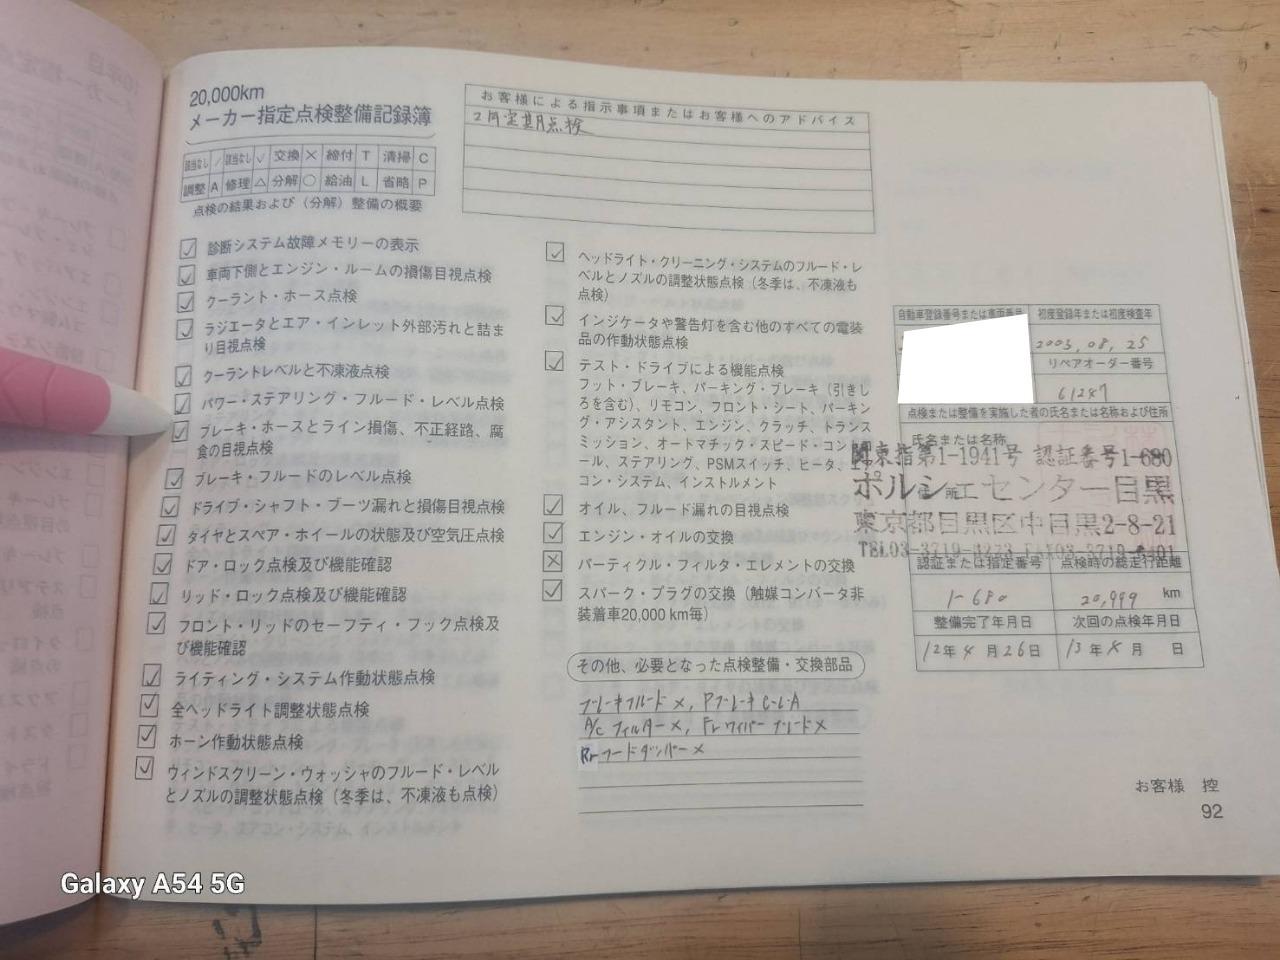 20,000km
メーカー指定点検整備記録簿
該当なし / 該当なし ✓ 交換 × 締付 T 清掃 C
調整 A 修理 △ 分解 ○ 給油 L 省略 P
点検の結果および（分解）整備の概要
診断システム故障メモリーの表示
車両下側とエンジン・ルームの損傷目視点検
クーラント・ホース点検
ラジエータとエア・インレット外部汚れと詰ま
り目視点検
クーラントレベルと不凍液点検
パワー・ステアリング・フルード・レベル点検
ブレーキ・ホースとライン損傷、不正経路、腐
食の目視点検
ブレーキ・フルードのレベル点検
ドライブ・シャフト・ブーツ漏れと損傷目視点検
タイヤとスペア・ホイールの状態及び空気圧点検
ドア・ロック点検及び機能確認
リッド・ロック点検及び機能確認
フロント・リッドのセーフティ・フック点検及
び機能確認
ライティング・システム作動状態点検
全ヘッドライト調整状態点検
ホーン作動状態点検
ウィンドスクリーン・ウォッシャのフルード・レベル
とノズルの調整状態点検（冬季は、不凍液も点検）
お客様による指示事項またはお客様へのアドバイス
定期点検
ヘッドライト・クリーニング・システムのフルード・レ
ベルとノズルの調整状態点検（冬季は、不凍液も
点検）
インジケータや警告灯を含む他のすべての電装
品の作動状態点検
テスト・ドライブによる機能点検
フット・ブレーキ、パーキング・ブレーキ（引きし
ろを含む）、リモコン、フロント・シート、パーキン
グ・アシスタント、エンジン、クラッチ、トランス
ミッション、オートマチック・スピード・コントロ
ール、ステアリング、PSMスイッチ、ヒータ、エア
コン・システム、インストルメント
オイル、フルード漏れの目視点検
エンジン・オイルの交換
パーティクル・フィルタ・エレメントの交換
スパーク・プラグの交換（触媒コンバータ非
装着車20,000 km毎）
その他、必要となった点検整備・交換部品
ブレーキフルード ×, Pブレーキ C・L・A
A/C フィルター ×, Fr ワイパー ブレード ×
Rr フードダンパー ×
自動車登録番号または車両番号 初度登録年または初度検査年
2003, 08, 25
リペアオーダー番号
61247
点検または整備を実施した者の氏名または名称および住所
氏名または名称
関東指第1-1941号 認証番号1-680
住所
ポルシェセンター目黒
東京都目黒区中目黒2-8-21
認証または指定番号 点検時の総走行距離
1-680 20,999 km
整備完了年月日 次回の点検年月日
12年 4 月 26日 13年 月 日
お客様 控
92
Galaxy A54 5G